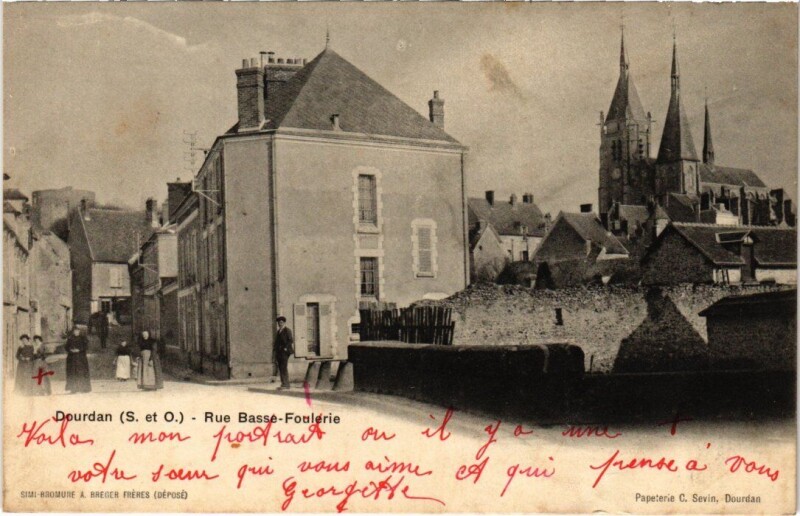 Dourdan (S. et O.) - Rue Basse-Foulerie
Voila mon portrait ou il y a une +
votre sœur qui vous aime et qui pense à vous
Georgette
SIMI-BROMURE A. BREGER FRÈRES (DÉPOSÉ)
Papeterie C. Sevin, Dourdan